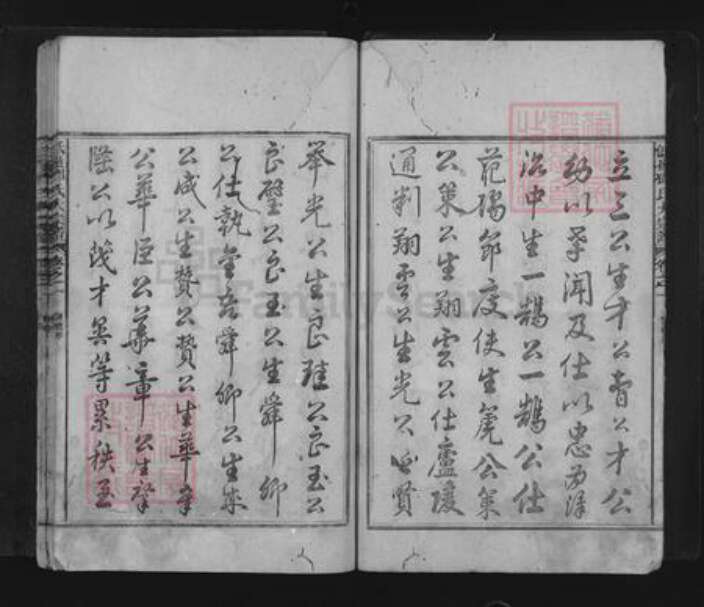 立三公生才公啻公才公
幼以孝聞及仕以忠為譯
洛中生一鵠公一鵠公仕
范陽節度使生虎公策
公策公生翔雲公仕廬陵
通判翔雲公生光公必賢
舉光公生良珪公良玉公
良璧公良玉公生舜卿
公仕執金吾舜卿公生
公咸公生贊公贊公生華
公華臣公華章公生
蔭公以茂才異等累秩至
FamilySearch